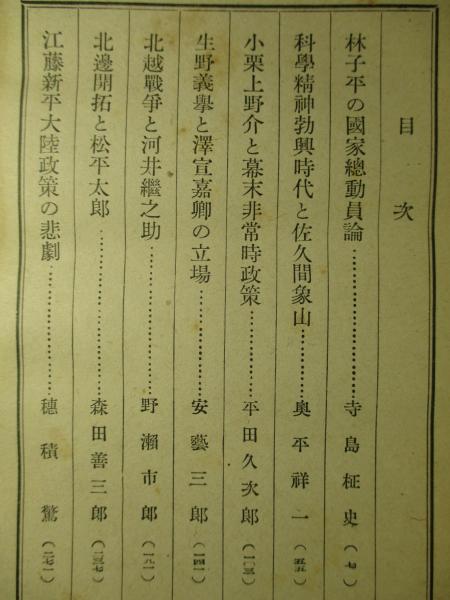 目次
林子平の國家總動員論……………………寺島柾史（七）
科學精神勃興時代と佐久間象山……………奥平祥一（五五）
小栗上野介と幕末非常時政策………………平田久次郎（一〇三）
生野義擧と澤宣嘉卿の立場…………………安藝三郎（一四一）
北越戰爭と河井繼之助………………………野瀬市郎（一九一）
北邊開拓と松平太郎…………………………森田善三郎（二三七）
江藤新平大陸政策の悲劇……………………穗積驚（二七一）